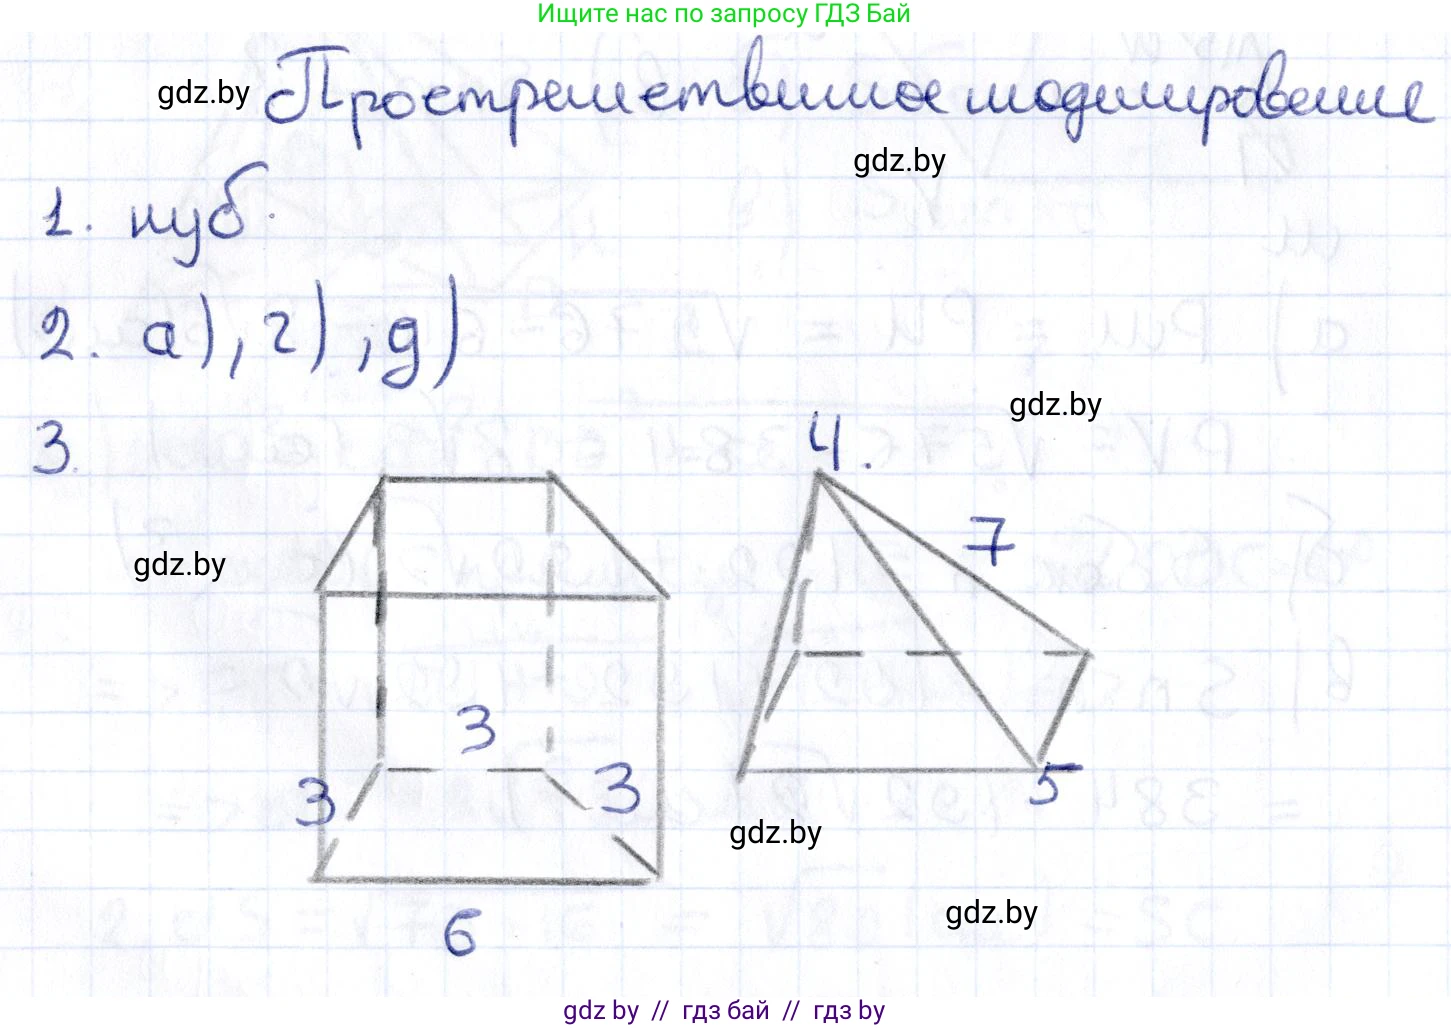 Ищите нас по запросу ГДЗ Бай
gdz.by
Пространственное моделирование
gdz.by
1. куб.
2. а), г), д)
gdz.by
3.
4.
7
gdz.by
3
3
3
5
gdz.by
6
gdz.by
gdz by // гдз бай // гдз by